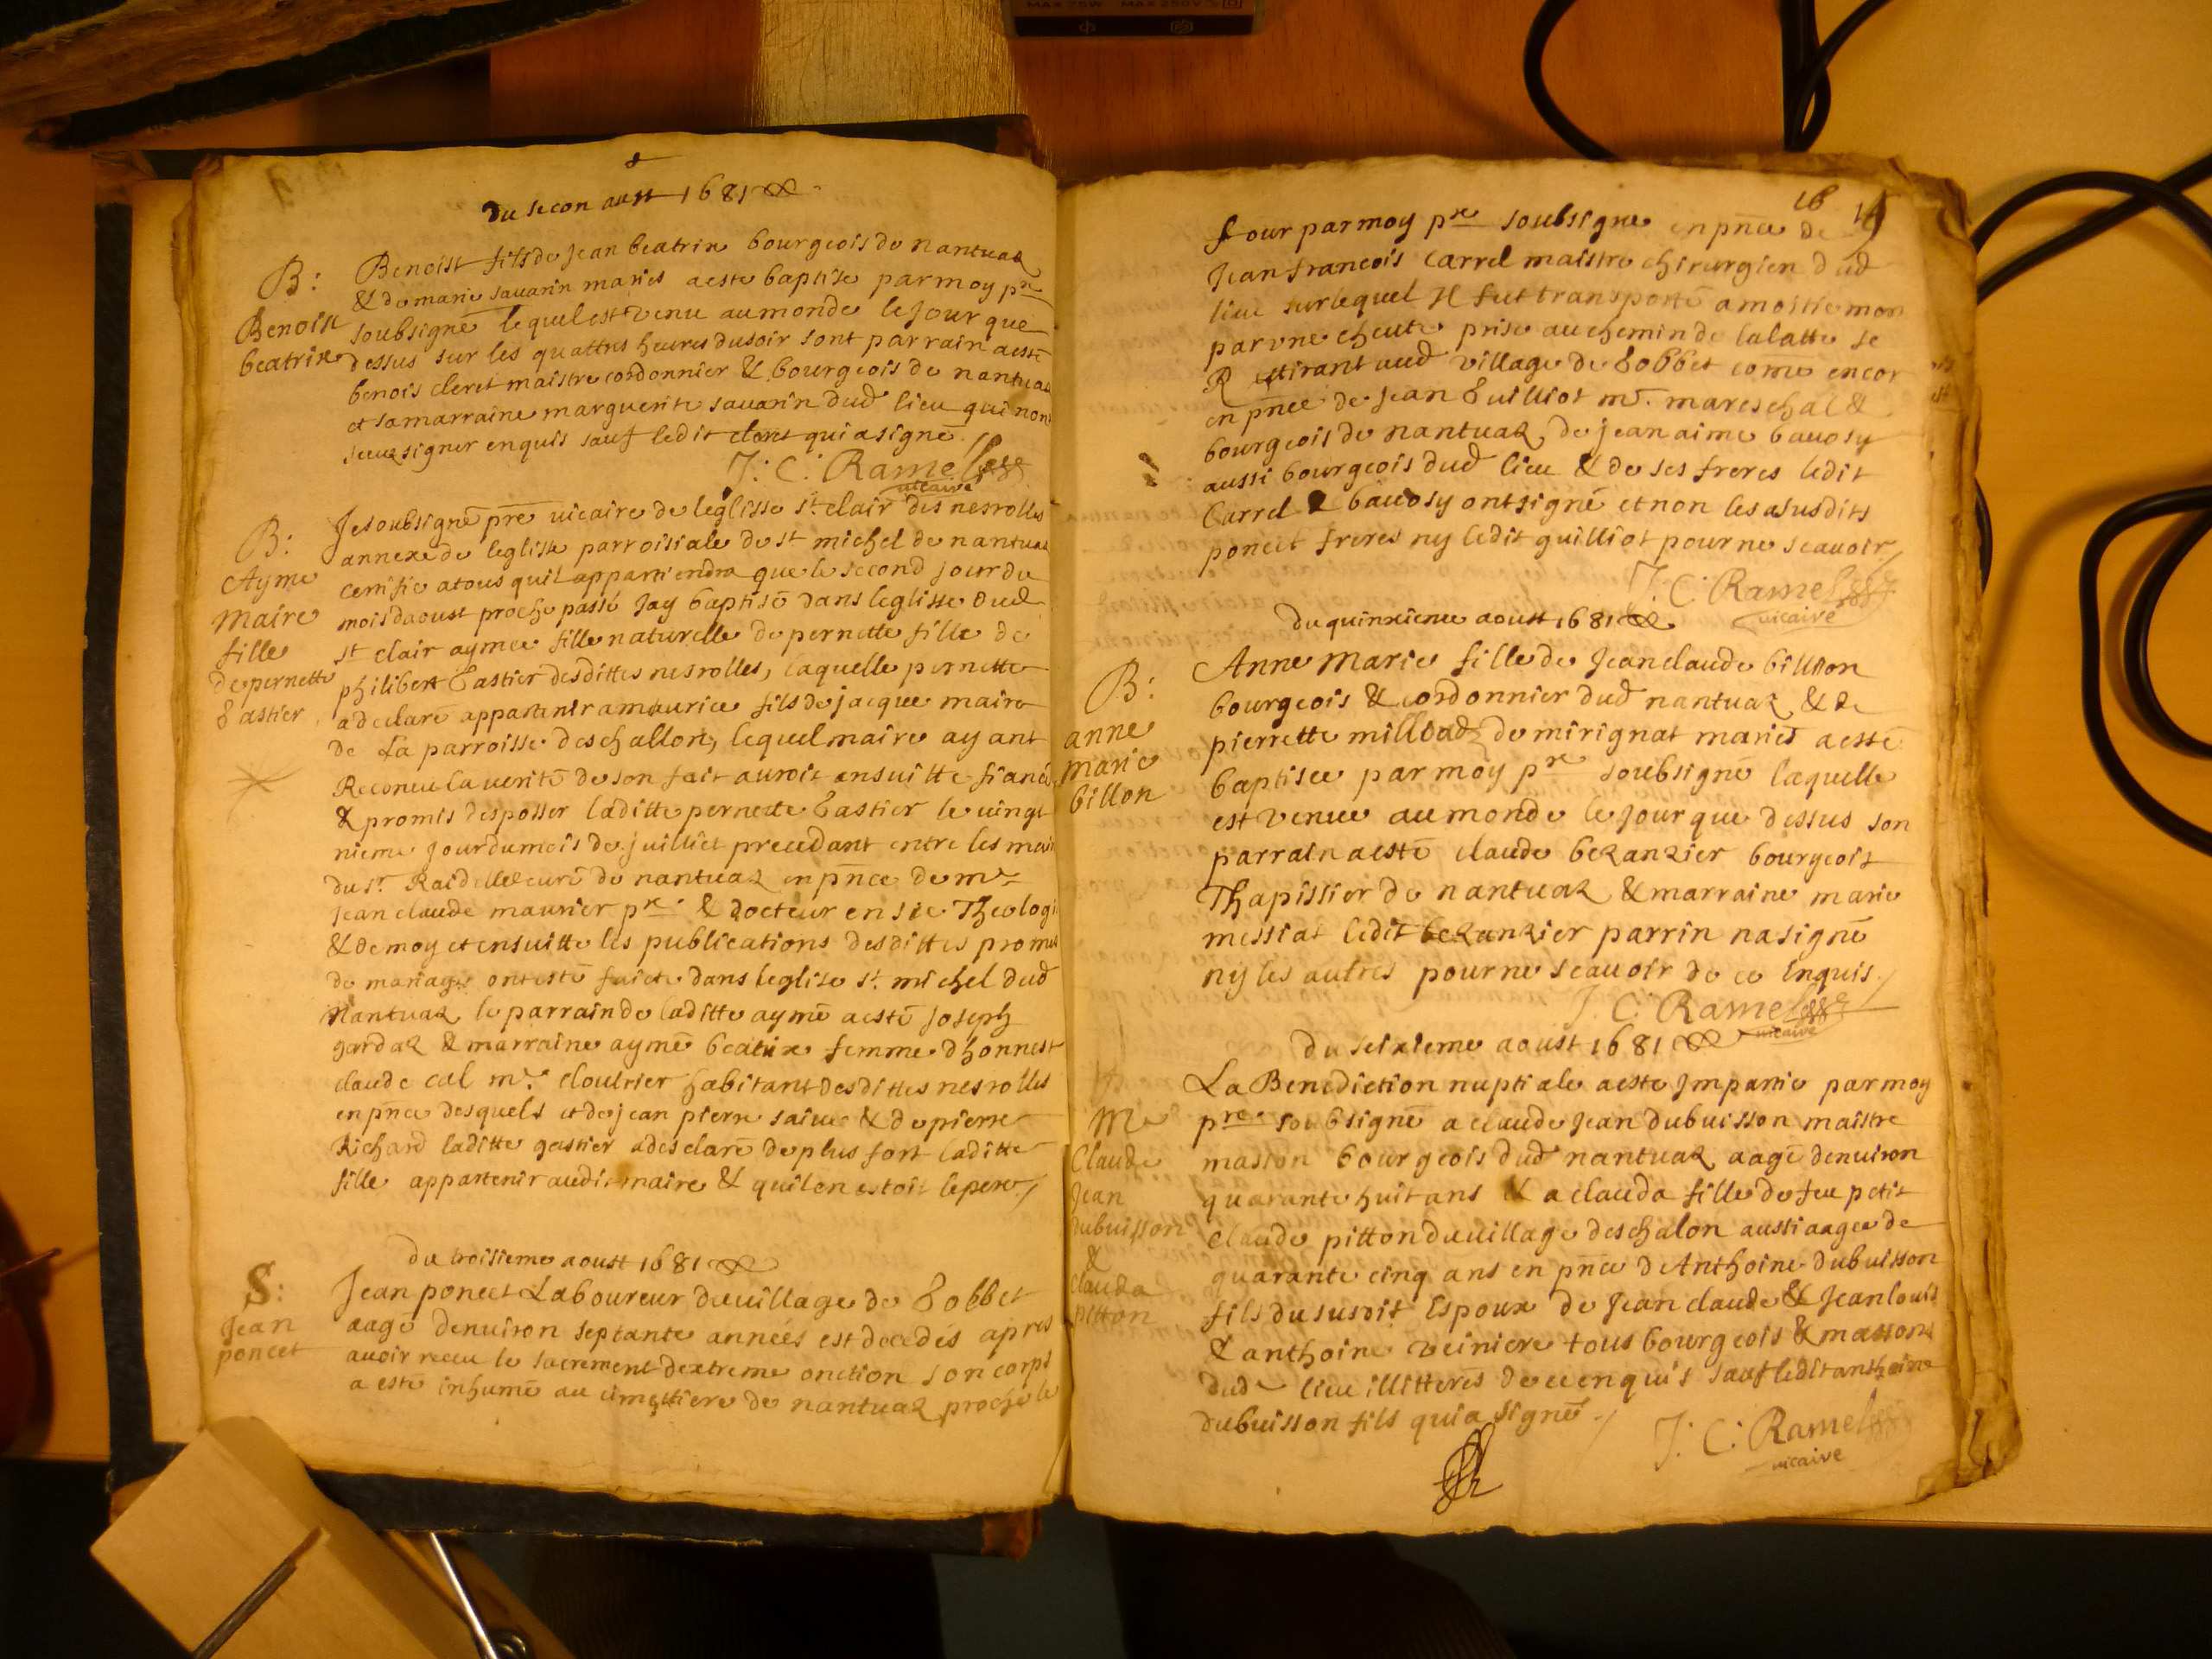 du secon aust 1681
B:
Benoist
beatrix
Benoist fils de Jean beatrix bourgeois de nantuaz
& de marie sauarin mariés a esté baptisé par moy pre
soubsigné lequel est venu au monde le Jour que
dessus sur les quattres heures du soir sont parrain a esté
benois cleret maistre cordonnier & bourgeois de nantuaz
et sa marraine marguerite sauarin dud lieu qui nont
sceuz signer enquis sauf ledit cleret qui a signé./
J: C: Ramel
vicaire
B:
Ayme
Maire
fille
de pernette
Gastier
Je soubsigné pre vicaire de leglisse st clair des nesrolles
annexe de leglisse parroisiale de st michel de nantuaz
certifie a tous quil appartiendra que le second jour du
mois daoust proche passé Jay baptisé dans leglisse dud
st clair aymee fille naturelle de pernette fille de
philibert Gastier desdittes nesrolles, laquelle pernette
a declaré appartenir a maurice fils de jacque maire
de La parroisse deschallon, lequel maire ayant
Reconeu la verité de son fait auroit ensuitte fiancé
& promis desposser laditte pernette Gastier le vingt
nieme Jour du mois de juilliet precedant entre les mains
du sr Raidellet curé de nantuaz en pnce de mre
Jean claude maurier pre & docteur en ste Theologie
& de moy et ensuitte les publications desdittes promes
de mariage ont esté faicte dans leglise st michel dud
Nantuaz le parrain de laditte aymé a esté Joseph
gardaz & marraine aymé beatrix femme dhonnest
claude cal mre cloutrier habitant desdittes nesrolles
en pnce desquels et de jean pierre saiue & de pierre
Richard laditte gastier a desclaré de plus fort laditte
fille appartenir audit maire & quil en estoit le pere./
du troisieme aoust 1681
S:
Jean
poncet
Jean poncet Laboureur du village de Gobbet
aagé denuiron septante années est decedés apres
auoir receu le sacrement dextreme onction son corps
a esté inhumé au cimettiere de nantuaz proche le
16
four par moy pre soubsigné en pnce de
Jean francois Carrel maistre chirurgien dud
lieu sur lequel Il fut transporté a moitie mort
par vne cheute prise au chemin de lalatte se
Rettirant aud village de Gobbet come encor
en pnce de Jean Guilliot mre mareschal &
bourgeois de nantuaz, de jean aime bauosy
aussi bourgeois dud lieu & de ses freres ledit
Carrel & bauosy ont signé et non les asusdits
poncet freres ny ledit guilliot pour ne scauoir/
J: C: Ramel
vicaire
du quinzieme aoust 1681
B:
anne
marie
billon
Anne Marie fille de Jean claude billion
bourgeois & cordonnier dud nantuaz & de
pierrette milloud de mirignat mariés a esté
baptisee par moy pre soubsigné laquelle
est venue au monde le Jour que dessus son
parrain a esté claude bezanzier bourgeois
Thapissier de nantuaz & marraine marie
messiat ledit bezanzier parrin na signé
ny les autres pour ne scauoir de ce Inquis./
J. C: Ramel
vicaire
du seizieme aoust 1681
M
Claude
Jean
dubuisson
&
Clauda
pitton
La Benediction nuptiale a esté Impartie par moy
pre soubsigné a claude Jean dubuisson maistre
masson bourgeois dud nantuaz aagé denuiron
quarante huit ans & a clauda fille de feu petit
claude pitton du village deschalon aussi aagee de
quarante cinq ans en pnce dAnthoine dubuisson
fils du susdit Espoux de Jean claude & Jean louis
& anthoine veiniere tous bourgeois & massons
dud lieu illitterés de ce enquis sauf ledit anthoine
dubuisson fils qui a signé./
J: C: Ramel
vicaire